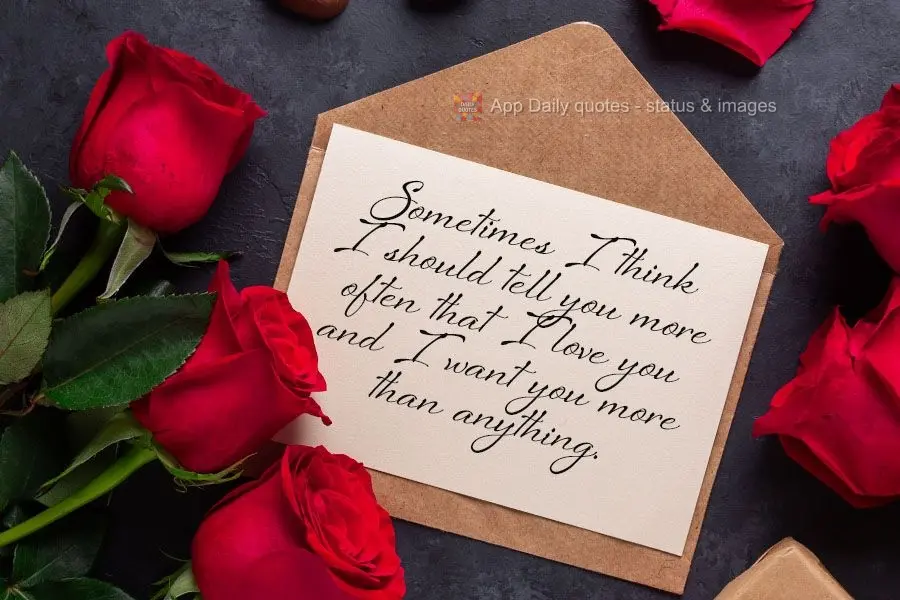 DAILY QUOTES
App Daily quotes - status & images
Sometimes I think
I should tell you more
often that I love you
and I want you more
than anything.